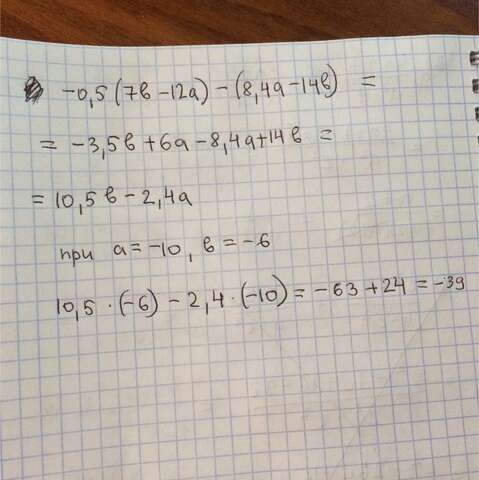 -0,5(7в-12а)-(8,4а-14в) =
= -3,5в+6а-8,4а+14в =
= 10,5в-2,4а
при а=-10, в=-6
10,5·(-6)-2,4·(-10)=-63+24=-39